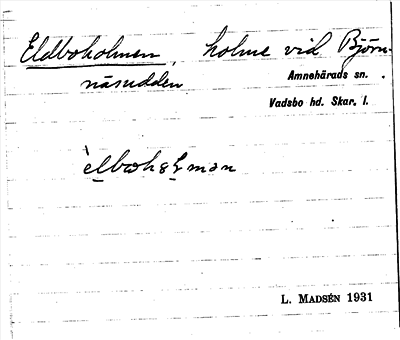 Eldboholmen, holme vid Björn-
näsudden
Amnehärads sn.
Vadsbo hd. Skar. l.
L. MADSÉN 1931